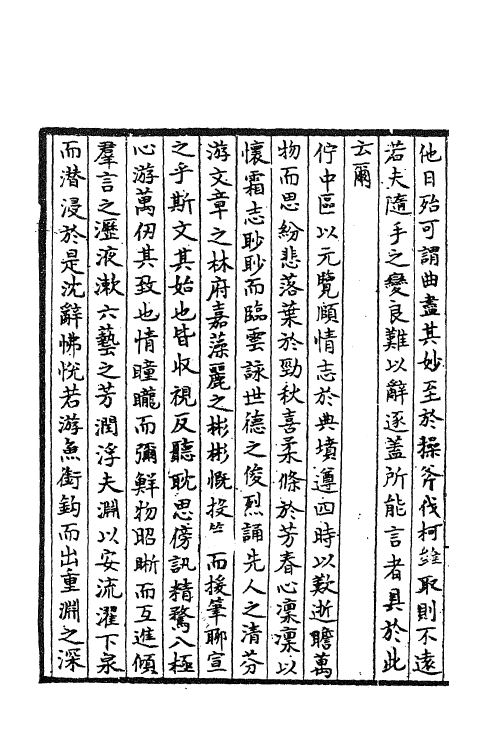 他日殆可謂曲盡其妙至於操斧伐柯雖取則不遠
若夫隨手之變良難以辭逐蓋所能言者具於此
云爾
佇中區以元覽頤情志於典墳遵四時以歎逝瞻萬
物而思紛悲落葉於勁秋喜柔條於芳春心凛凛以
懷霜志眇眇而臨雲詠世德之俊烈誦先人之清芬
游文章之林府嘉藻麗之彬彬慨投竹而援筆聊宣
之乎斯文其始也皆收視反聽耽思傍訊精騖八極
心游萬仞其致也情曈曨而彌鮮物昭晰而互進傾
羣言之瀝液漱六藝之芳潤浮天淵以安流濯下泉
而潜浸於是沈辭怫恱若游魚銜鈎而出重淵之深